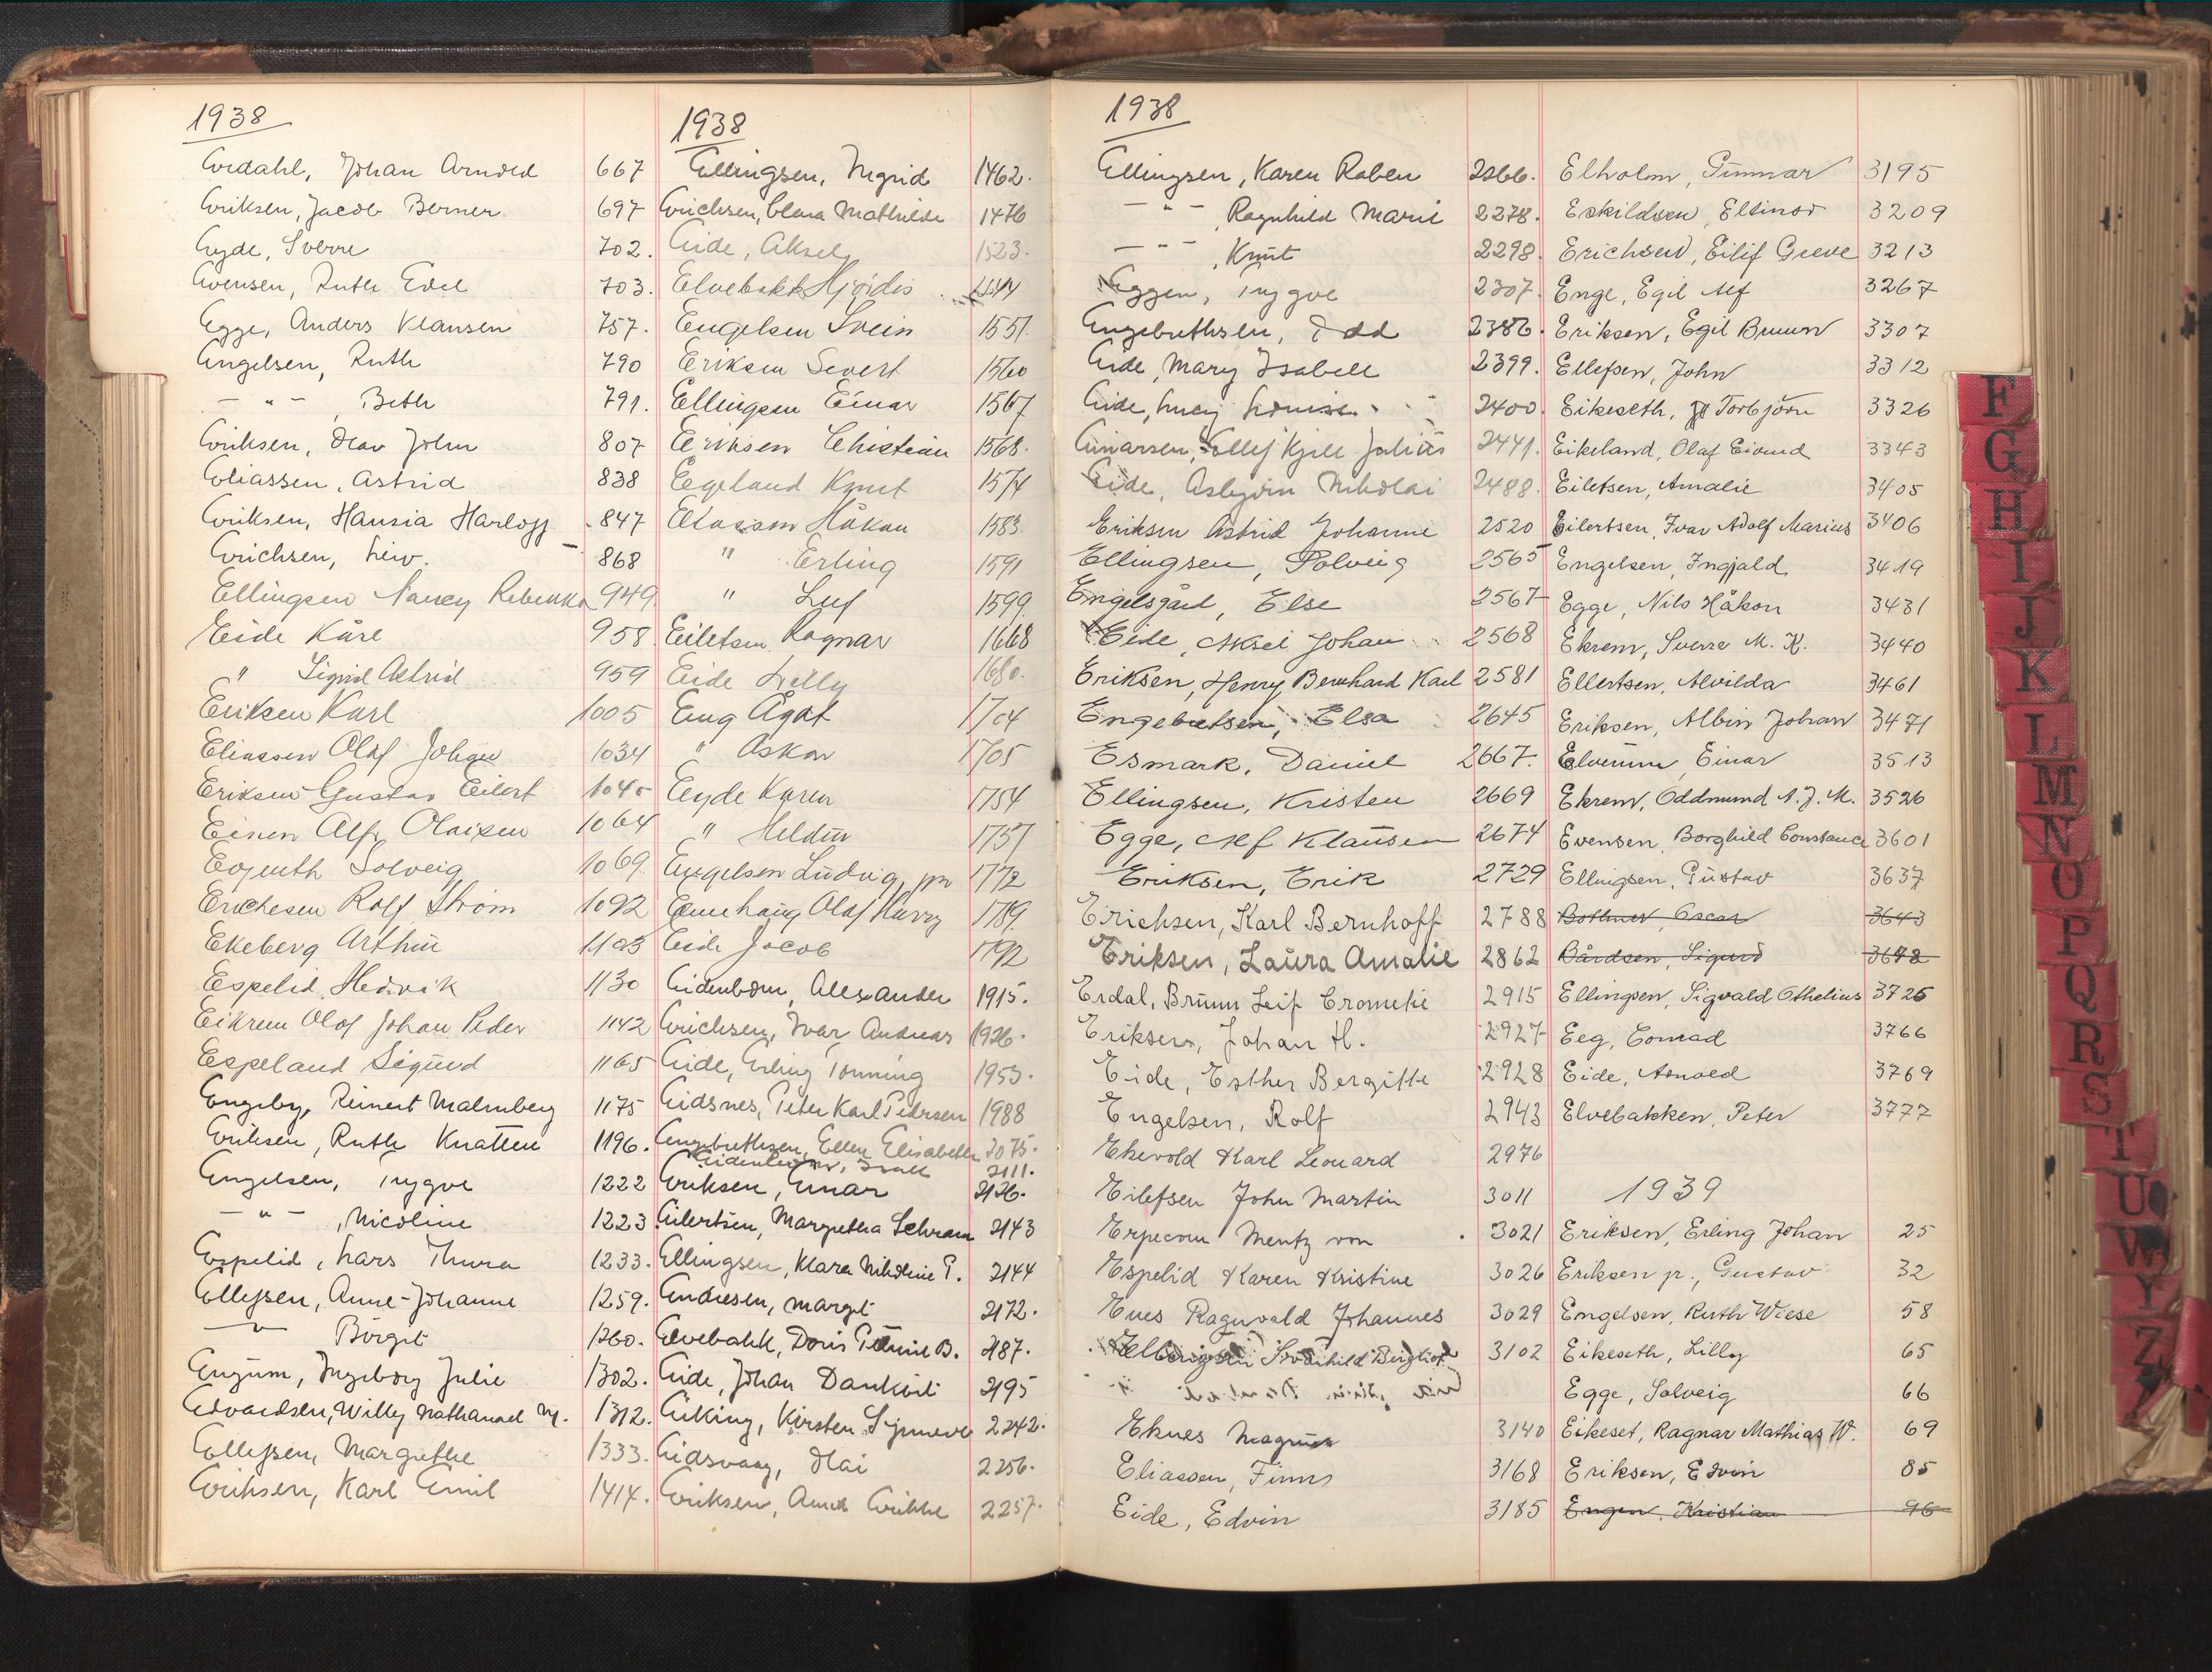 1938
Evdahl, Johan Arnold 667
Eriksen, Jacob Berner 697
Eyde, Sverre 702.
Evensen, Ruth Edel 703.
Egge, Anders Klausen 757.
Engelsen, Ruth 790
— " — , Beth 791.
Eriksen, Olav John 807
Eliassen, Astrid 838
Eriksen, Hansia Harlopp 847
Erichsen, Liv. 868
Ellingsen Nancy Rebekka 949
Eide Kåre 958
" Sigrid Astrid 959
Eriksen Karl 1005
Eliassen Olaf Johan 1034
Eriksen Gustav Eilert 1040
Einen Alf Olaisen 1064
Solveig 1069
Erichesen Rolf Strøm 1092
Ekeberg Arthur 1103
Espelid Hedvik 1130
Eikrem Olof Johan Peder 1142
Espeland Sigurd 1165
Engeby, Reinert Malmberg 1175
Eriksen, Ruth Knatten 1196.
Engelsen, Trygve 1222
— " — , Nicoline 1223
Espelid, Lars Thura 1233.
Ellefsen, Anne-Johanne 1259.
— " — Borgit 1260.
Engum, Ingeborg Julie 1302.
Edvardsen, Willy Nathanael M. 1312.
Ellefsen, Margrethe 1333.
Eriksen, Karl Emil 1414.
1938
Ellingsen, Ingrid 1462.
Erichsen, Clara Mathilde 1476
Eide, Aksel 1523.
Elvebakk Hjördis
Engelsen Svein 1551.
Eriksen Severt 1560
Ellingsen Einar 1567
Eriksen Christian 1568.
Egeland Knut 1574
Håkon 1583.
" Erling 1591
" Leif 1599
Eilertsen Ragnar 1668
Eide Lilly 1680.
Eng Ågot 1704
" Askar 1705
Eyde Karen 1754
" Heldur 1757
Engelsen Ludvig jr 1772
Olaf Harry 1789.
Eide Jacob 1792
Eidenbom, Alexander 1915.
Erichsen, Ivar Andreas 1926.
Eide, Erling Tonning 1953.
Eidsnes, Peter Karl Pedersen 1988
Engebrethsen, Ellen Elisabeth 2075.
2111.
Eriksen, Einar 2126.
Eilertsen, Margretha Schram 2143
Ellingsen, Klara Nikoline P. 2144
Endresen, Margit 2172.
Elvebakk, Doris Petrine B. 2187.
Eide, Johan Dankert 2195
Eiking, Kirsten Synneve 2242.
Eidsvaag, Olai 2256.
Eriksen, Arnt Erikke 2257.
1938
Ellingsen, Karen Raben 2266.
— " — , Ragnhild Marie 2278.
— " — , Knut 2298.
Eggen, Trygve 2307.
Engebrethsen, Odd 2386.
Eide, Mary Isabell 2399.
Eide, Lucy Louise. 2400.
Einarsen, Ellef Kjell Julius 2441.
Eide, Asbjørn Nikolai 2488.
Eriksen Astrid Johanne 2520
Ellingsen, Solveig 2565
Engelsgård, Else 2567
Eide, Aksel Johan 2568
Eriksen, Henry Bernhard Karl 2581
Engebretsen, Elsa 2645
Esmark, Daniel 2667.
Ellingsen, Kristen 2669
Egge, Alf Klausen 2674
Eriksen, Erik 2729
Erichsen, Karl Bernhoff 2788
Eriksen, Laura Amalie 2862
Erdal, Bruun Leif Crometie 2915
Eriksen, Johan H. 2927
Eide, Esther Bergitte 2928
Engelsen, Rolf 2943
Ekevold Karl Leonard 2976
Eilefsen John Martin 3011
Erpecom Mentz von 3021
Espelid Karen Kristine 3026
Enes Ragnvald Johannes 3029
Svanhild Bergliot 3102
Eknes Magnus 3140
Eliassen, Finn 3168
Eide, Edvin 3185
Elholm, Gunnar 3195
Eskildsen, Ellinor 3209
Erichsen, Eilif Greve 3213
Enge, Egil Alf 3267
Eriksen, Egil Bruun 3307
Ellefsen, John 3312
Eikeseth, Torbjörn 3326
Eikeland, Olaf Eivind 3343
Eilertsen, Amalie 3405
Eilertsen, Ivar Adolf Marius 3406
Engelsen, Ingjald 3419
Egge, Nils Håkon 3431
Ekrem, Sverre M. K. 3440
Ellertsen, Alvilda 3461
Eriksen, Albin Johan 3471
Elverum, Einar 3513
Ekrem, Oddmund A. J. M. 3526
Evensen, Borghild Constance 3601
Ellingsen, Gustav 3637
Bothner, Oscar 3643
Bårdsen, Sigurd 3672
Ellingsen, Sigvald Othelius 3725
Eeg, Conrad 3766
Eide, Arnold 3769
Elvebakken, Peter 3777
1939
Eriksen, Erling Johan 25
Eriksen jr., Gustav 32
Engelsen, Ruth Wiese 58
Eikeseth, Lilly 65
Egge, Solveig 66
Eikeset, Ragnar Mathias W. 69
Eriksen, Edvin 85
Engen, Kristian 96
F
G
H
I
J
K
L
M
N
O
P
Q
R
S
T
U
W
Y
Z